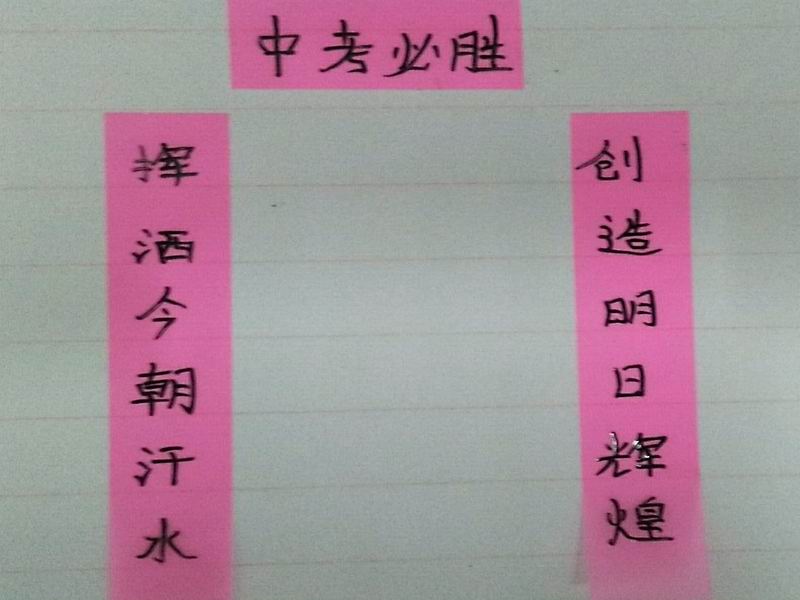 中考必胜
挥洒今朝汗水
创造明日辉煌